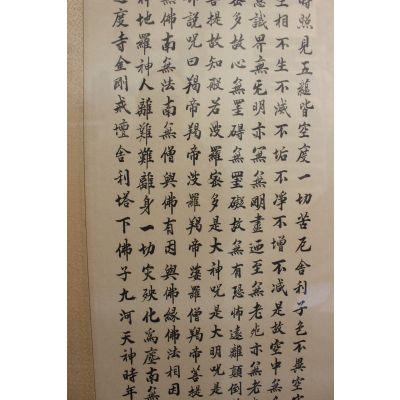 時照見五蘊皆空度一切苦厄舍利子色不異空
相不生不滅不垢不淨不增不減是故空中無
識界無无明亦無無明盡迺至無老死亦無老
多故心無罣碍無罣礙故無有恐怖遠離顛倒
菩提故知般若波羅密多是大神咒是大明咒是
說咒曰揭帝揭帝波羅揭帝婆羅僧揭帝菩提
無佛南無法南無僧與佛有因與佛緣佛法相因
神地羅神人離難難離身一切灾殃化為塵南無
度寺金剛戒壇舍利塔下佛子九河天神時年